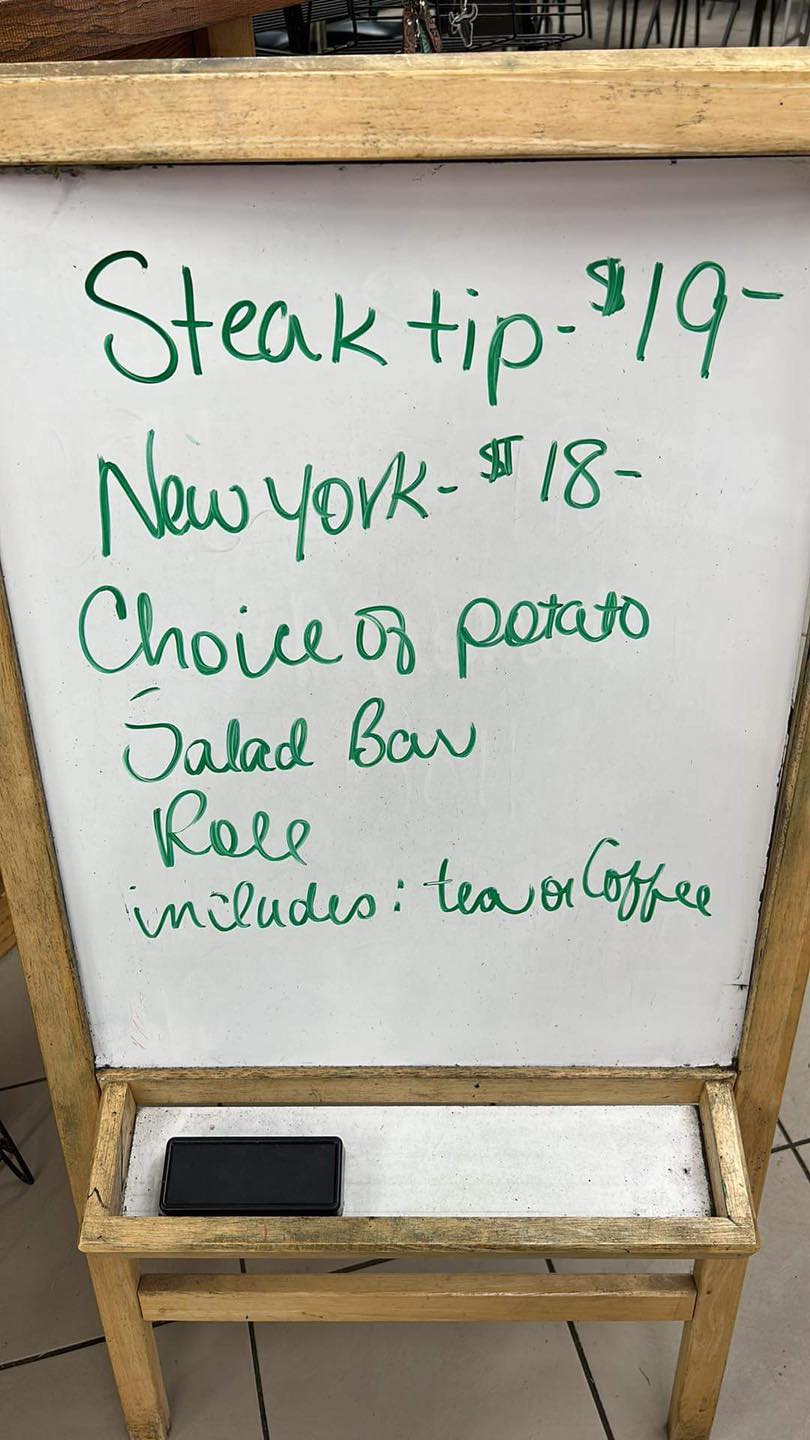 Steak tip - $19-
New York - $18-
Choice of potato
Salad Bar
Roll
includes: tea or Coffee